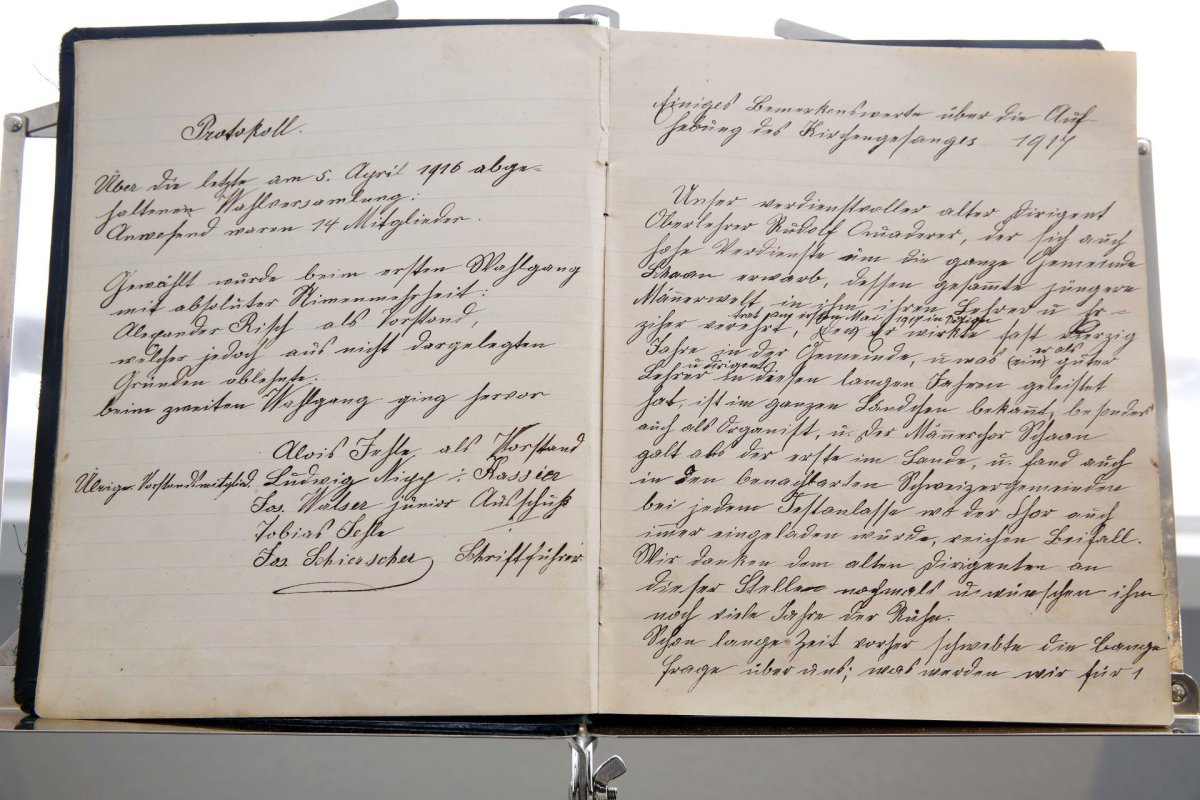 Protokoll.
Über die letzte am 5. April 1916 abge-
haltenen Wahlversamlung:
Anwesend waren 14 Mitglieder.
Gewählt wurde beim ersten Wahlgang
mit absoluter Stimenmehrheit:
Alexander Risch als Vorstand,
welcher jedoch aus nicht dargelegten
Gründen ablehnte.
beim zweiten Wahlgang ging hervor
Alois Jehle, als Vorstand
Übrige Vorstandsmitglied. Ludwig Nipp : Kassier
Jos. Walser junior Ausschuß
Tobias Jehle
Jos. Schierscher Schriftführer
Einiges Bemerkenswerte über die Auf
hebung des Kirchengesanges 1917
Unser verdienstvoller alter Dirigent
Oberlehrer Rudolf Quaderer, der sich auch
hohe Verdienste um die ganze Gemeinde
Schaan erwarb, dessen gesamte jüngere
Männerwelt in ihm ihren Lehrer u Er-
trat im Mai 1917
zieher verehrt, Er wirkte fast vierzig
Jahre in der Gemeinde, u was er als (ein) guter
u dirigent
Lehrer in diesen langen Jahren geleistet
hat, ist im ganzen Ländchen bekant, besonders
auch als Organist, u. der Männerchor Schaan
galt als der erste im Lande, u. fand auch
in den benachbarten Schweizergemeinden
bei jedem Festanlasse wo der Chor auch
immer eingeladen wurde, reichen Beifall.
Wir danken dem alten Dirigenten an
dieser Stelle nochmals u wünschen ihm
noch viele Jahre der Ruhe.
Schon lange Zeit vorher schwebte die bange
Frage über uns; was werden wir für